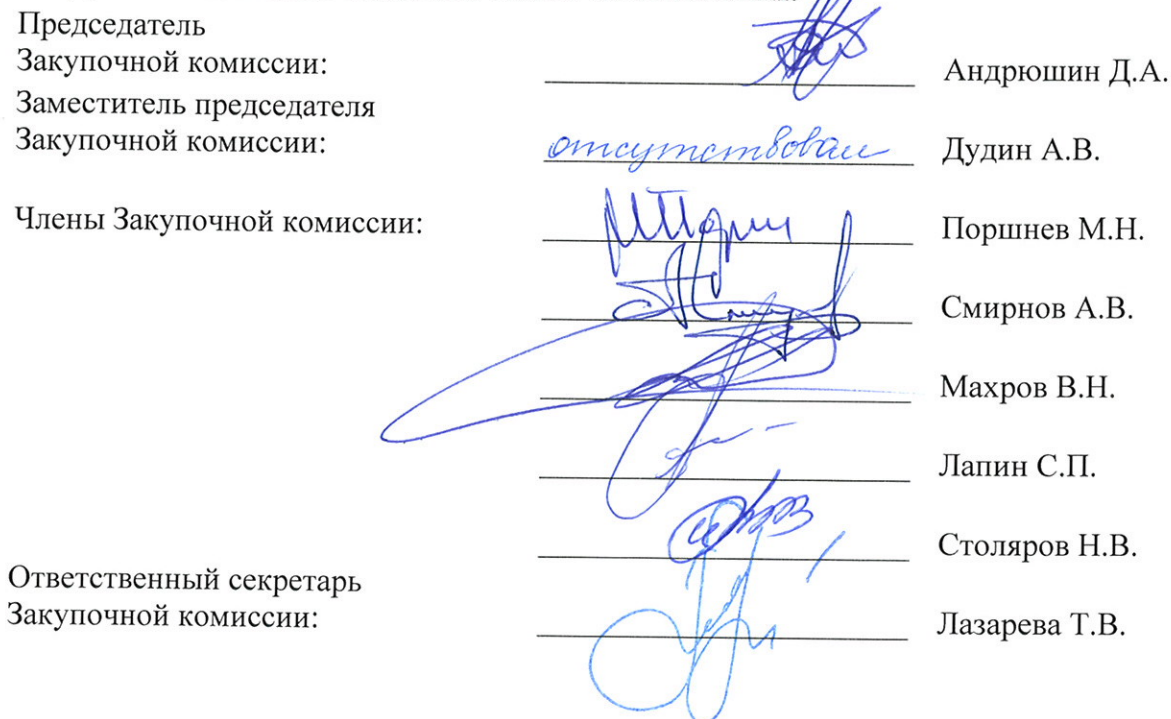 Председатель
Закупочной комиссии: Андрюшин Д.А.
Заместитель председателя
Закупочной комиссии: отсутствовал Дудин А.В.
Члены Закупочной комиссии: Поршнев М.Н.
Смирнов А.В.
Махров В.Н.
Лапин С.П.
Столяров Н.В.
Ответственный секретарь
Закупочной комиссии: Лазарева Т.В.